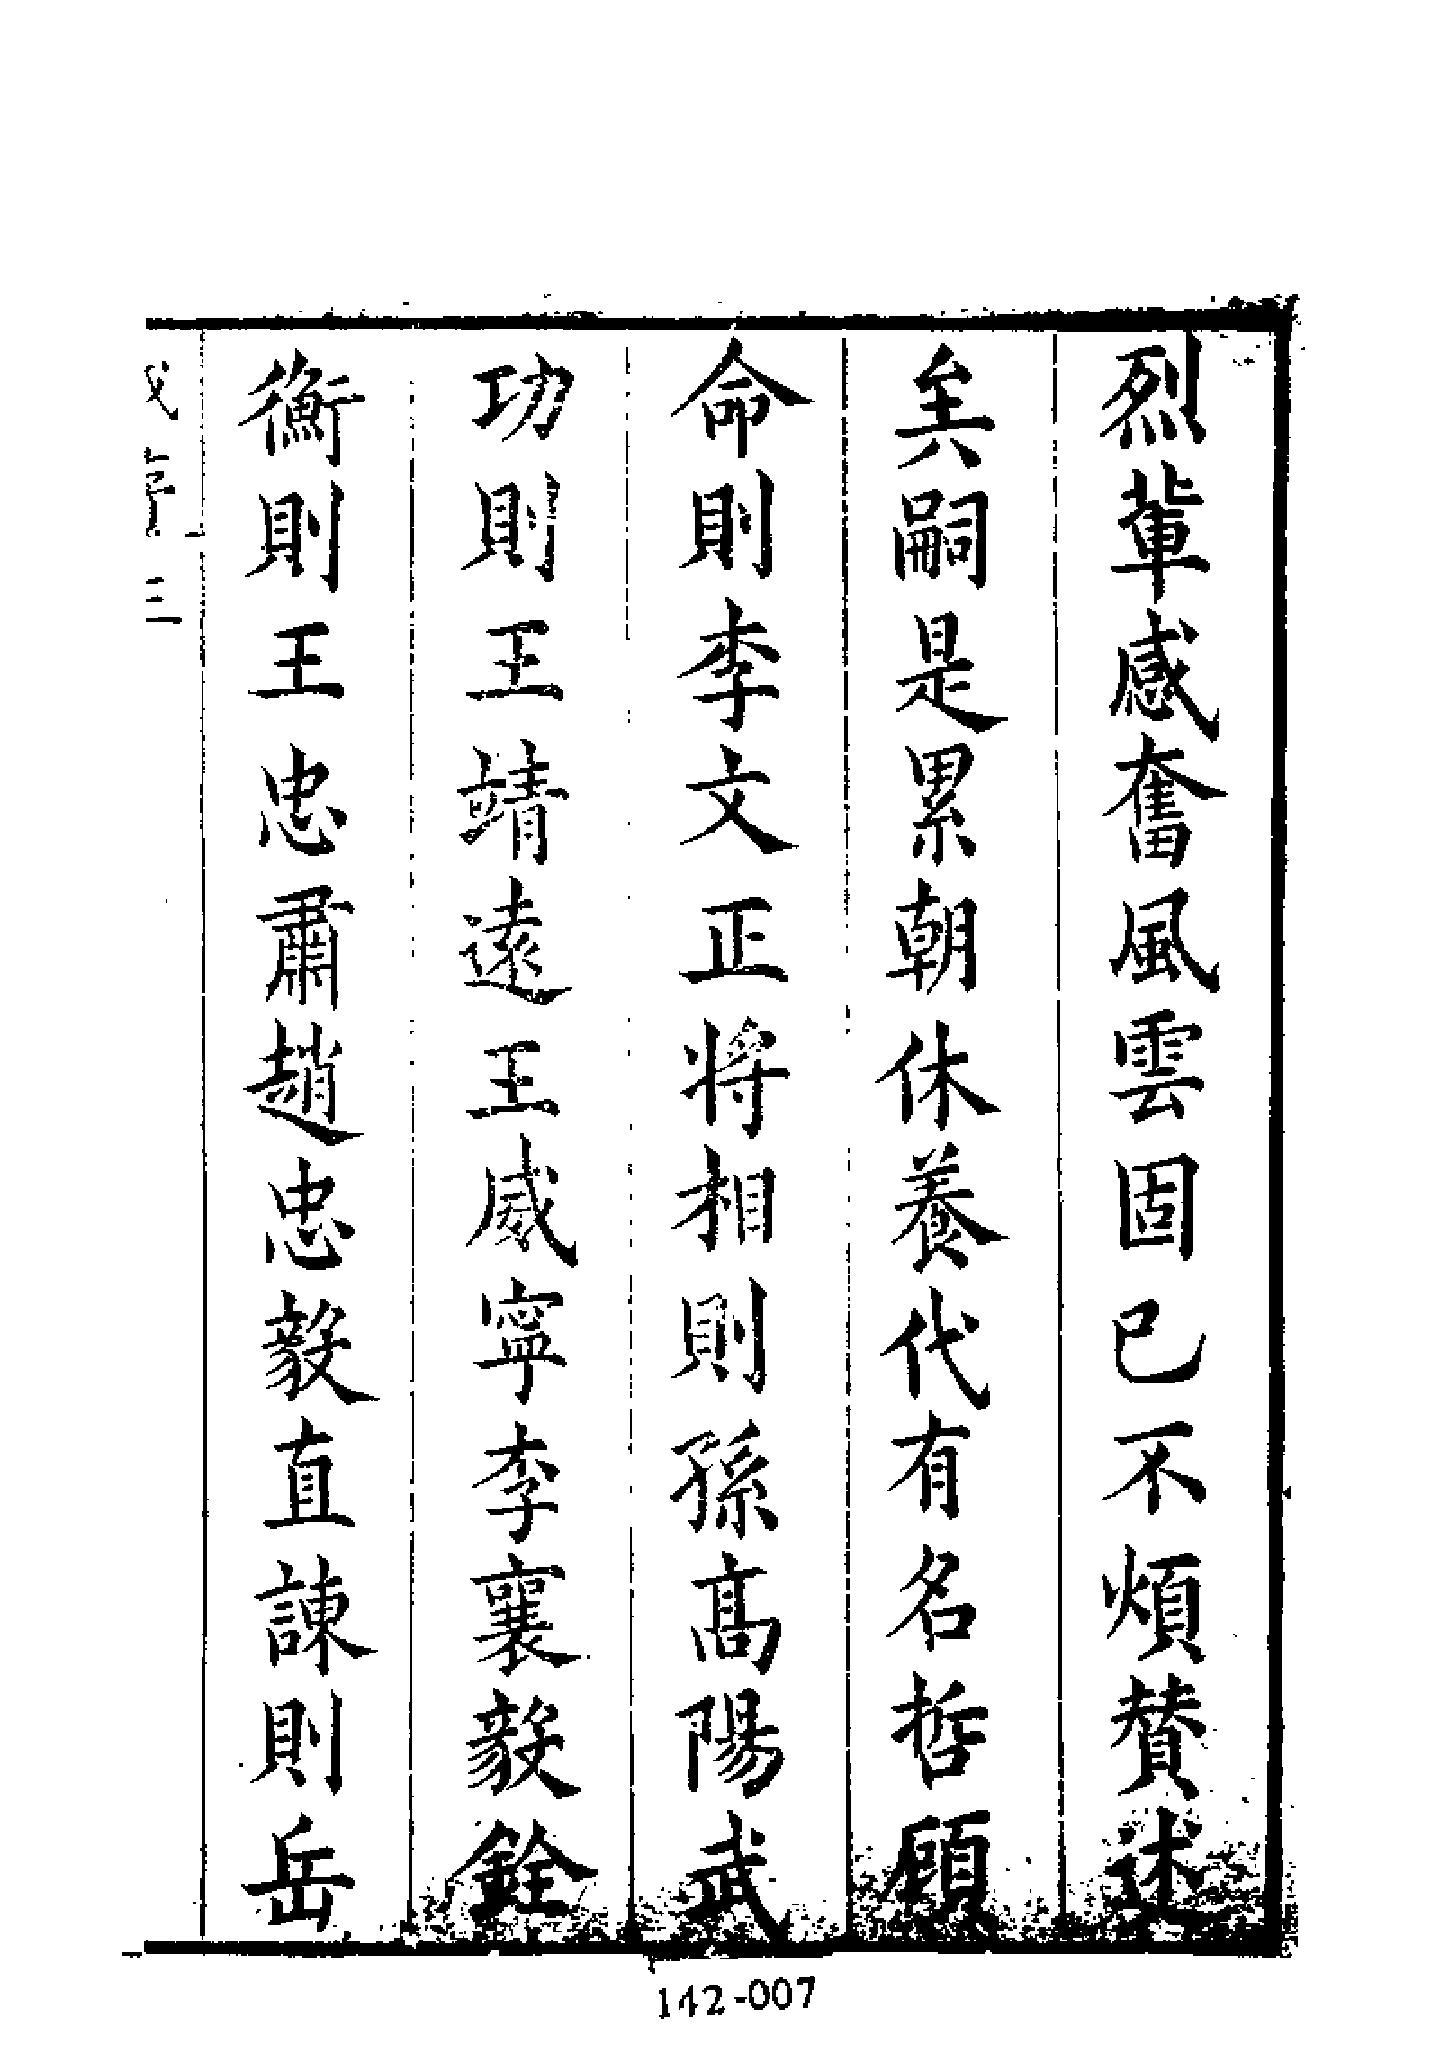 烈軰感奮風雲固已不煩賛述
矣嗣是累朝休養代有名哲顧
命則李文正將相則孫髙陽武
功則王靖遠王威寧李襄毅銓
衡則王忠肅趙忠毅直諫則岳
序 三
142-007